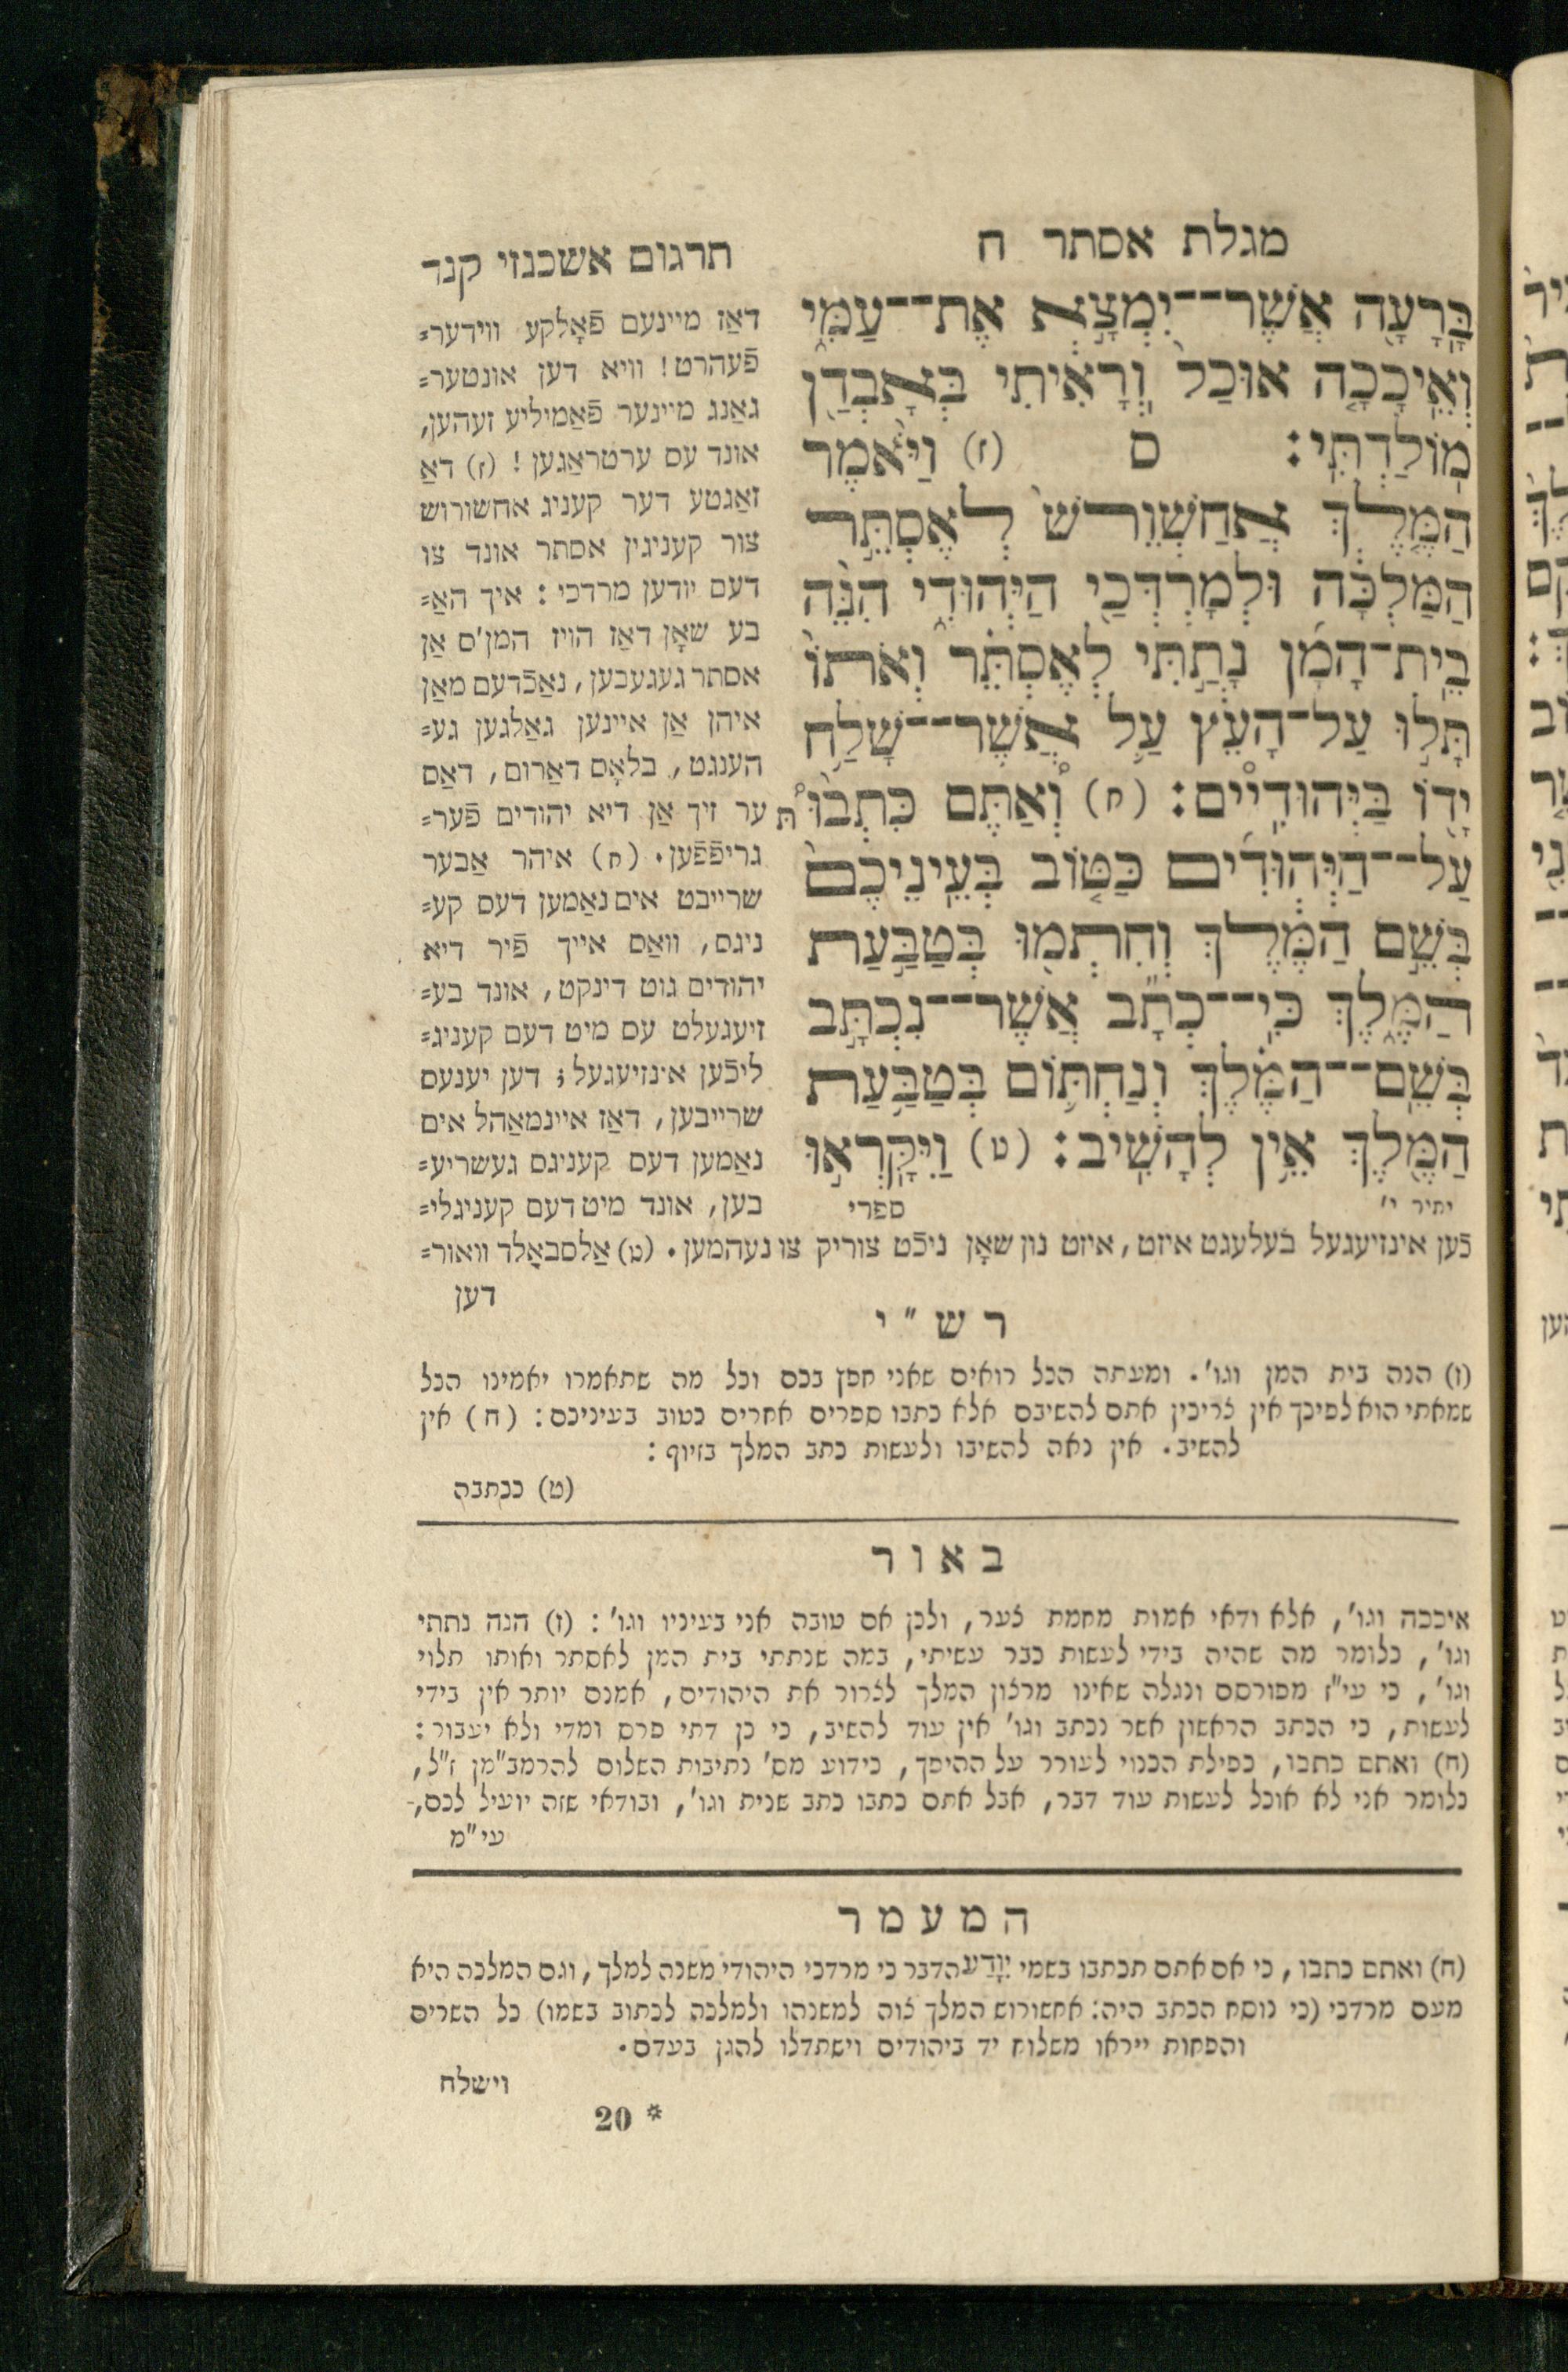 מגלת אסתר ח
בָּרָעָ֖ה אֲשֶׁר־־יִמְצָ֣א אֶת־־עַמִּ֑י
וְאֵֽיכָכָ֤ה אוּכַל֙ וְֽרָאִ֔יתִי בְּאָבְדַ֖ן
מֽוֹלַדְתִּֽי׃ ס (ז) וַיֹּ֨אמֶר
הַמֶּ֤לֶךְ אֲחַשְׁוֵרוֹשׁ֙ לְאֶסְתֵּ֣ר
הַמַּלְכָּ֔ה וּֽלְמָרְדֳּכַ֖י הַיְּהוּדִ֑י הִנֵּ֨ה
בֵֽית־הָמָ֜ן נָתַ֣תִּי לְאֶסְתֵּ֗ר וְאֹתוֹ֙
תָּל֣וּ עַל־הָעֵ֔ץ עַ֛ל אֲשֶׁר־־שָׁלַ֥ח
יָד֖וֹ בַּיְּהוּדִֽיים׃ (ח) וְ֠אַתֶּם כִּתְב֨וּ
עַֽל־־הַיְּהוּדִ֜ים כַּטּ֤וֹב בְּעֵֽינֵיכֶם֙
בְּשֵׁ֣ם הַמֶּ֔לֶךְ וְחִתְמ֖וּ בְּטַבַּ֣עַת
הַמֶּ֑לֶךְ כִּֽי־־כְתָ֞ב אֲשֶׁר־־נִכְתָּ֣ב
בְּשֵׁם־־הַמֶּ֗לֶךְ וְנַחְתּ֛וֹם בְּטַבַּ֥עַת
הַמֶּ֖לֶךְ אֵ֥ין לְהָשִֽׁיב׃ (ט) וַיִּקָּרְא֣וּ
יתיר י' ספרי
תרגום אשכנזי קנד
דאַז מיינעם פֿאָלקע ווידער=
פֿעהרט! וויא דען אונטער=
גאַנג מיינער פֿאַמיליע זעהען,
אונד עס ערטראַגען! (ז) דאַ
זאַגטע דער קעניג אחשורוש
צור קעניגין אסתר אונד צו
דעם יודען מרדכי: איך האַ=
בע שאָן דאַז הויז המן'ס אַן
אסתר געגעבען, נאַכֿדעם מאַן
איהן אַן איינען גאַלגען גע=
הענגט, בלאָס דאַרום, דאַס
ער זיך אַן דיא יהודים פֿער=
גריפֿפֿען. (ח) איהר אַבער
שרייבט אים נאַמען דעס קע=
ניגס, וואַס אייך פֿיר דיא
יהודים גוט דינקט, אונד בע=
זיעגעלט עס מיט דעם קעניג=
ליכֿען אינזיעגעל; דען יענעס
שרייבען, דאַז איינמאַהל אים
נאַמען דעס קעניגס געשריע=
בען, אונד מיט דעם קעניגלי=
כֿען אינזיעגעל בעלעגט איזט, איזט נון שאָן ניכֿט צוריק צו נעהמען. (ט) אַלסבאַלד וואור=
דען
רש"י
(ז) הנה בית המן וגו'. ומעתה הכל רואים שאני חפץ בכם וכל מה שתאמרו יאמינו הכל
שמאתי הוא לפיכך אין צריכין אתם להשיבם אלא כתבו ספרים אחרים כטוב בעיניכם: (ח) אין
להשיב. אין נאה להשיבו ולעשות כתב המלך בזיוף:
(ט) ככתבה
באור
איככה וגו', אלא ודאי אמות מחמת צער, ולכן אם טובה אני בעיניו וגו': (ז) הנה נתתי
וגו', כלומר מה שהיה בידי לעשות כבר עשיתי, במה שנתתי בית המן לאסתר ואותו תלוי
וגו', כי עי"ז מפורסם ונגלה שאינו מרצון המלך לצרור את היהודים, אמנם יותר אין בידי
לעשות, כי הכתב הראשון אשר נכתב וגו' אין עוד להשיב, כי כן דתי פרס ומדי ולא יעבור:
(ח) ואתם כתבו, כפילת הכנוי לעורר על ההיפך, כידוע מס' נתיבות השלום להרמב"מן ז"ל,
כלומר אני לא אוכל לעשות עוד דבר, אבל אתם כתבו כתב שנית וגו', ובודאי שזה יועיל לכם,
עי"מ
המעמר
(ח) ואתם כתבו, כי אם אתם תכתבו בשמי יִוָּדַע הדבר כי מרדכי היהודי משנה למלך, וגם המלכה היא
מעם מרדכי (כי נוסח הכתב היה: אחשורוש המלך צוה למשנהו ולמלכה לכתוב בשמו) כל השרים
והפחות ייראו משלוח יד ביהודים וישתדלו להגן בעדם.
וישלח
20 *